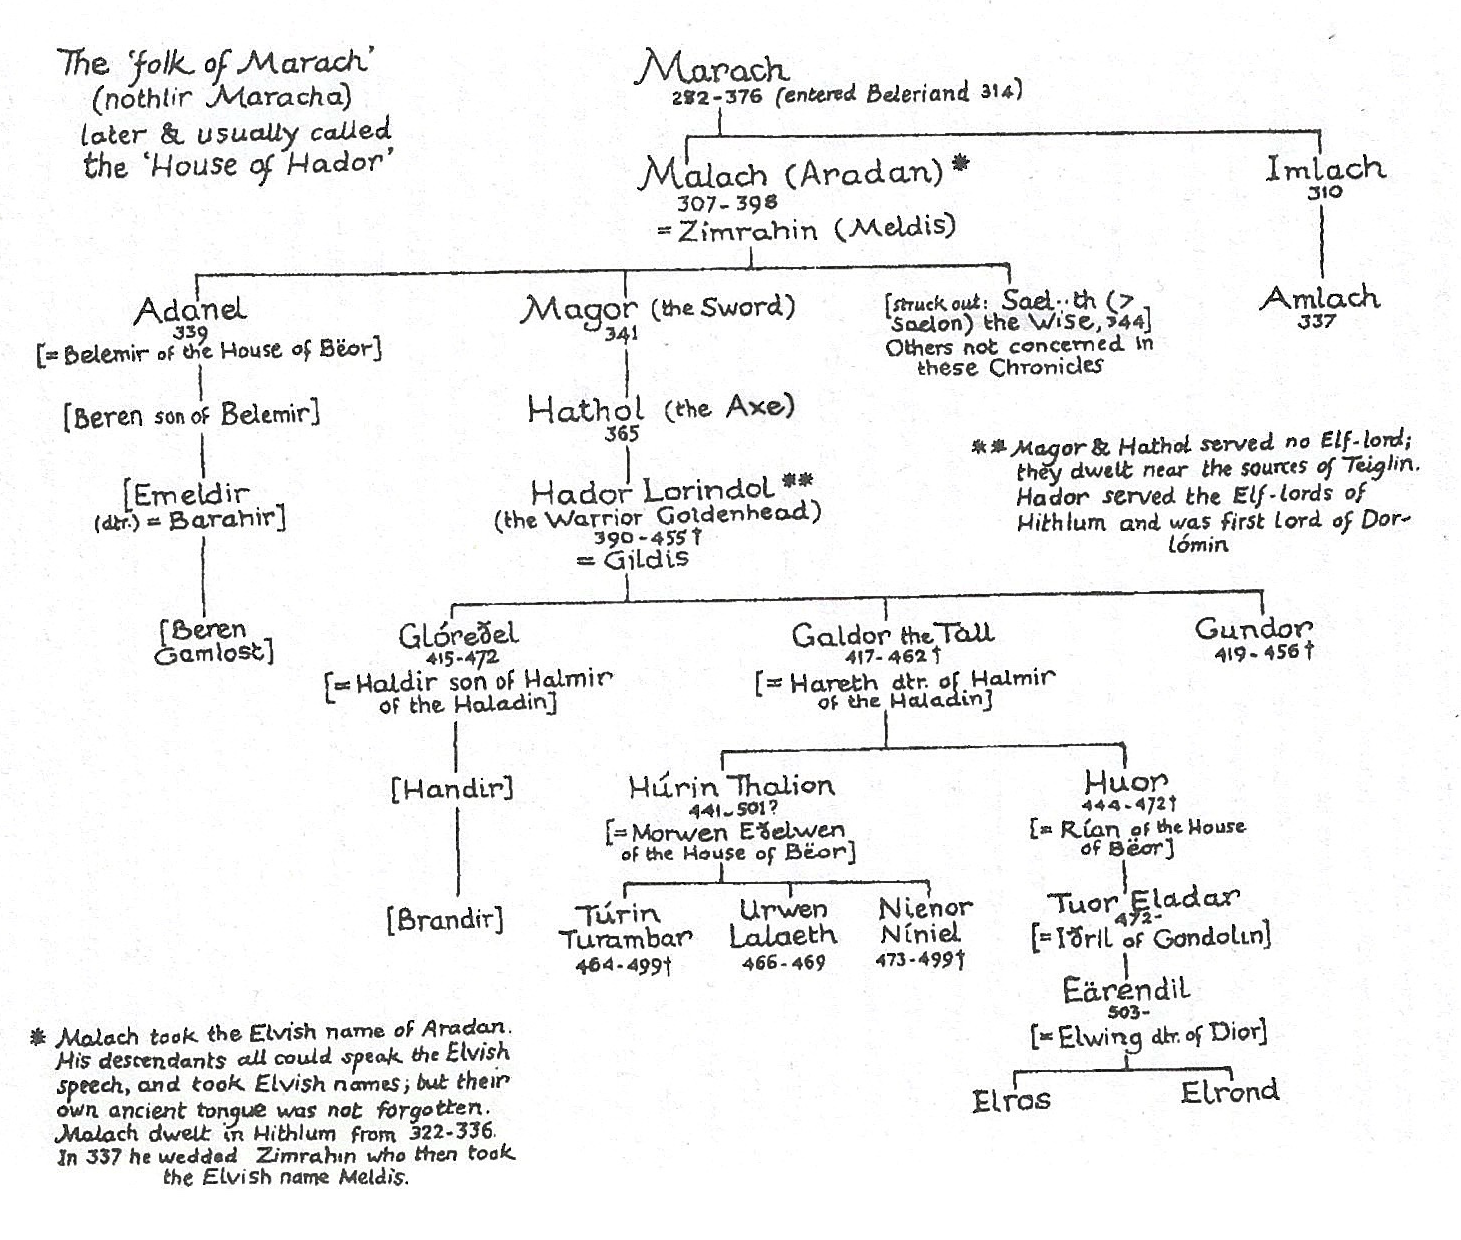 The 'folk of Marach'
(nothlir Maracha)
later & usually called
the 'House of Hador'
Marach
282-376 (entered Beleriand 314)
Malach (Aradan)*
307-398
= Zimrahin (Meldis)
Imlach
310
Adanel
339
[= Belemir of the House of Bëor]
Magor (the Sword)
341
[struck out: Sael··th (>
Saelon) the Wise, 344]
Others not concerned in
these Chronicles
Amlach
337
[Beren son of Belemir]
Hathol (the Axe)
365
** Magor & Hathol served no Elf-lord;
they dwelt near the sources of Teiglin.
Hador served the Elf-lords of
Hithlum and was first lord of Dor-
lómin
[Emeldir
(dtr.) = Barahir]
Hador Lorindol**
(the Warrior Goldenhead)
390-455†
= Gildis
[Beren
Gamlost]
Glóreðel
415-472
[= Haldir son of Halmir
of the Haladin]
Galdor the Tall
417-462†
[= Hareth dtr. of Halmir
of the Haladin]
Gundor
419-456†
[Handir]
Húrin Thalion
441-501?
[= Morwen Eðelwen
of the House of Bëor]
Huor
444-472†
[= Rían of the House
of Bëor]
[Brandir]
Túrin
Turambar
464-499†
Urwen
Lalaeth
466-469
Nienor
Níniel
473-499†
Tuor Eladar
472-
[= Iðril of Gondolin]
Eärendil
503-
[= Elwing dtr. of Dior]
Elros
Elrond
* Malach took the Elvish name of Aradan.
His descendants all could speak the Elvish
speech, and took Elvish names; but their
own ancient tongue was not forgotten.
Malach dwelt in Hithlum from 322-336.
In 337 he wedded Zimrahin who then took
the Elvish name Meldis.